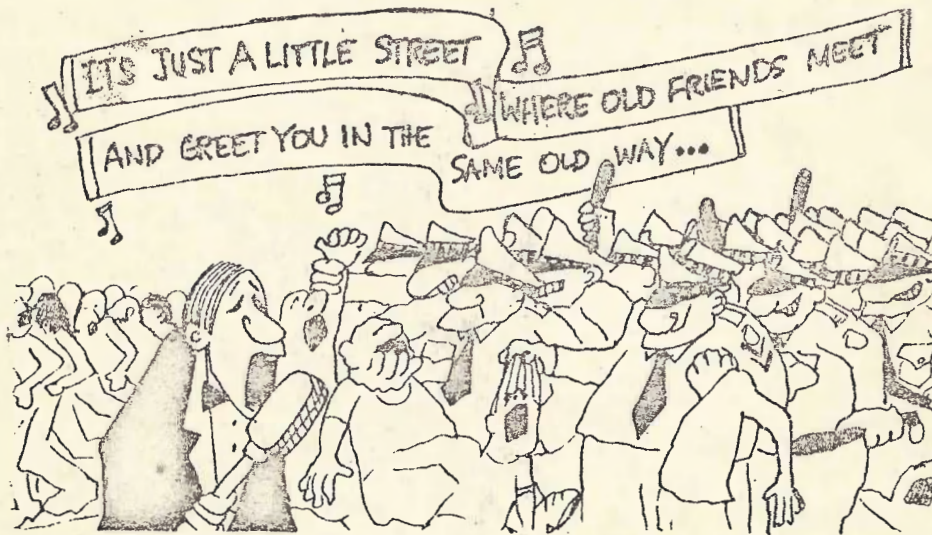 ITS JUST A LITTLE STREET
WHERE OLD FRIENDS MEET
AND GREET YOU IN THE
SAME OLD WAY...